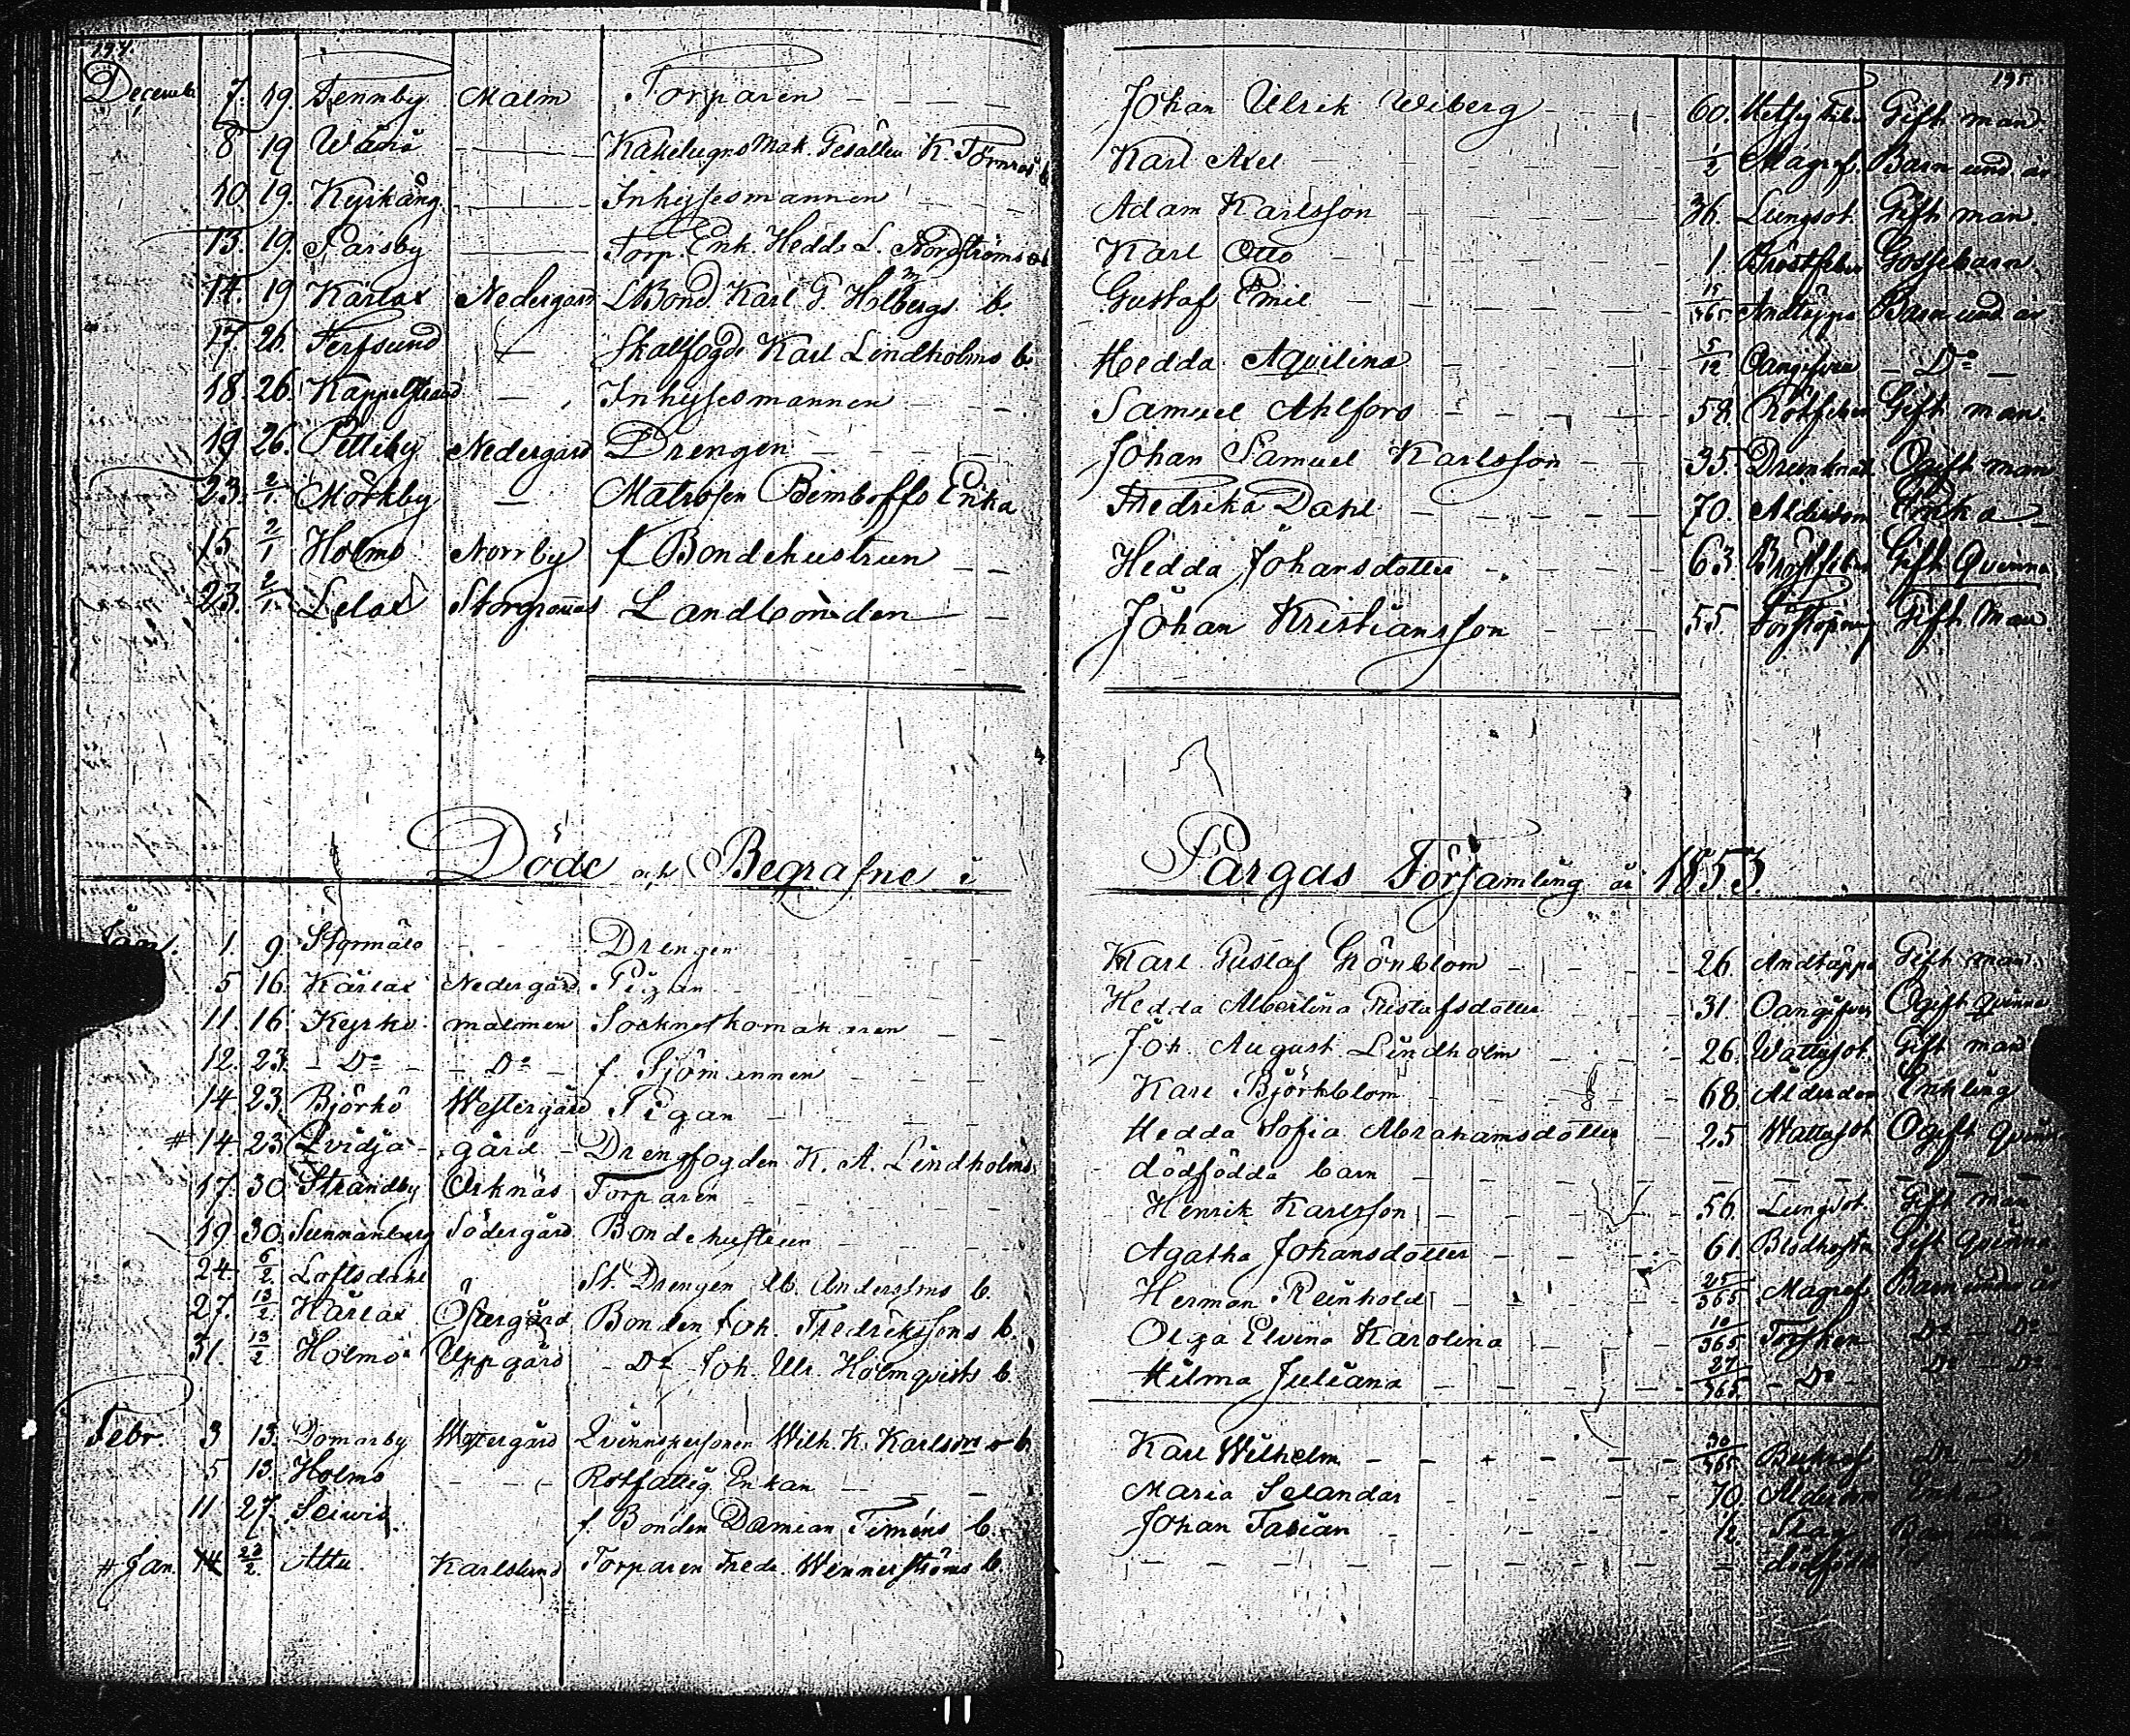 194. 195.
December 7. 19. Tennby Malm Torparen Johan Ulrik Wiberg 60. Gift man.
8 19 Kakelugns Mak. Gesällen K. Törnroos b. Karl Axel 1/2 Magref. Barn und. år
10. 19. Kyrkäng. Inhysesmannen Adam Karlsson 36. Lungsot. Gift man.
13. 19. Parsby Torp. Enk. Hedda L. Nordströms Karl Otto 1. Bröstfeber Gossebarn.
14. 19 Karlax Nedergård LBond. Karl G. Holmbergs b. Gustaf Emil 15/365 Andtäppa Barn und. år
17. 26. Terfsund Skallfogde Karl Lindholms b. Hedda Aqvilina 5/12 Oangifven Do
18. 26. Kappelstrand Inhysesmannen Samuel Ahlfors 58. Rötfeber Gift man.
19 26. Petteby Nedergård Drengen Johan Samuel Karlsson 35. Drunknat Ogift man
23. 2/1 Mörkby Matrosen Bemboffs Enka Fredrika Dahl 70. Ålderdom Enka
15 2/1 Holmo Norrby f Bondehustrun Hedda Johansdotter 63. Bröstfeber Gift Qvinna
23. 2/1 Lelax Storgranas Landbonden Johan Kristiansson 55. Förstoppning Gift Man
Döde och Begrafne i Pargas Församling år 1853.
Jan. 1. 9 Stormälö Drengen Karl Gustaf Grönblom 26 Andtäppa Gift man
5 16. Kärlax Nedergård Pigan Hedda Albertina Gustafsdotter 31. Oangifven Ogift qvinna
11. 16 Kyrko malmen Sockneskomakaren Joh. August Lindholm 26. Wattusot. Gift man
12. 23. Do Do f. Sjömannen Karl Björkblom 68. Ålderdom Enkling
14. 23. Björkö Westergård Pigan Hedda Sofia Abrahamsdotter 25 Wattusot Ogift qvinna
# 14. 23 Qvidja gård Drengfogden K. A. Lindholms dödfödda barn
17. 30 Strandby Örknäs Torparen Henrik Karlsson 56. Lungsot. Gift man
19 30. Sunnanberg Södergård Bondehustrun Agatha Johansdotter 61. Blodhosta Gift qvinna
24. 6/2 Loftsdahl St. Drengen Ab. Anderssons b. Herman Reinhold 25/365 Magref Barn under år
27. 13/2 Härlax Östergård Bonden Joh. Fredrikssons b. Olga Elvina Karolina 10/365. Torsken Do Do
31. 13/2 Holmo Uppgård Do Joh. Ulr. Holmqvists b. Hilma Juliana 27/365. Do Do Do
Febr. 3 13. Domarby Westergård Qvinnspersonen Wilh. K. Karlsons b Karl Wilhelm 30/365 Bukref Do Do
5 13. Holmo Rotfattig Enkan Maria Selandar 70. Ålderdom Enka
11 27. Seiwis. f. Bonden Damian Timéns b. Johan Fabian 1/2 Slag
# Jan. 14 27/2. Attu. Karlslund Torparen Fredr. Wennerströms b. dödfödd